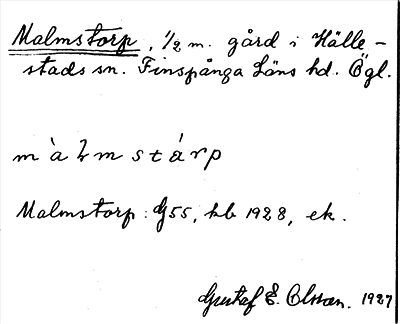 Malmstorp, 1/2 m. gård i Hälle-
stads sn. Finspånga Läns hd. Ögl.
màlmstárp
Malmstorp: G55, kb 1928, ek.
Gustaf E. Olsson. 1927